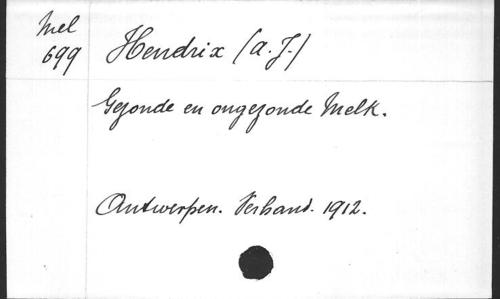 Mel
699
Hendrix (A. J.)
Gezonde en ongezonde Melk.
Antwerpen. Verhand. 1912.